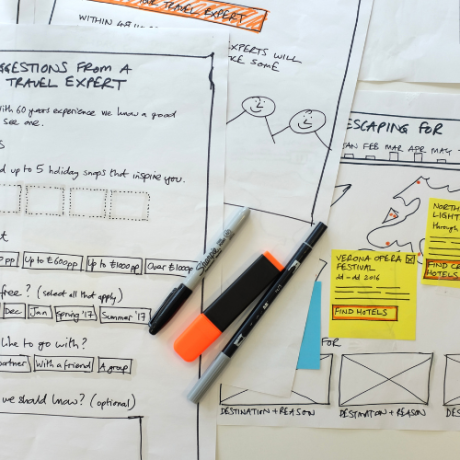 UR TRAVEL EXPERT
WITHIN
EXPERTS WILL
KE SOME
GGESTIONS FROM A
TRAVEL EXPERT
With 60 years experience we know a good
see one.
d up to 5 holiday snaps that inspire you.
pp
Up to £600pp
Up to £1000pp
Over £1000p
free? (select all that apply)
Dec
Jan
Spring '17
Summer '17
like to go with?
partner
With a friend
A group
we should know? (optional)
Sharpie
ESCAPING FOR
JAN FEB MAR APR MAY
NORTH
LIGHT
through
FIND
HOTELS
VERONA OPERA
FESTIVAL
dd-dd 2016
FIND HOTELS
FOR
DESTINATION + REASON
DESTINATION + REASON
DES